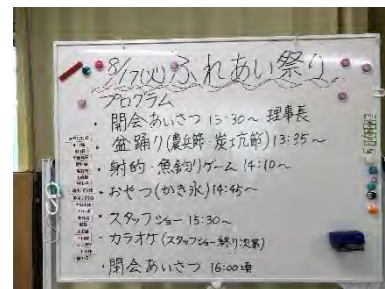 8/17(火)ふれあい祭り
プログラム
・開会あいさつ 13:30～ 理事長
・盆踊り(農兵節・炭坑節) 13:35～
・射的・魚釣りゲーム 14:10～
・おやつ(かき氷) 14:45～
・スタッフショー 15:30～
・カラオケ(スタッフショー終り次第)
・閉会あいさつ 16:00頃